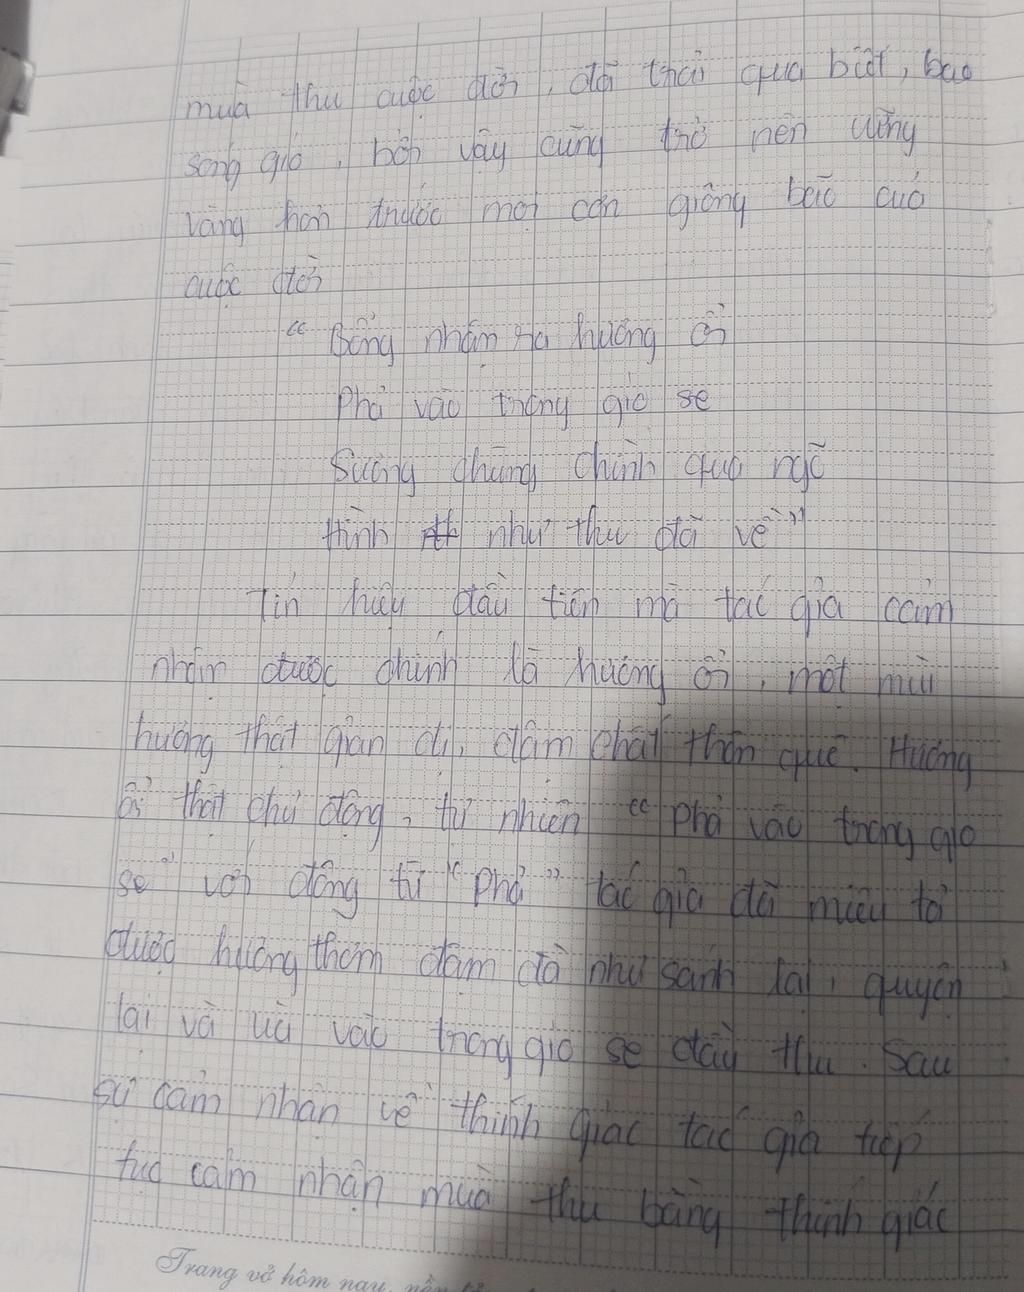 mùa thu cuộc đời, đã trải qua biết, bao
sóng gió, bởi vậy cũng trở nên vững
vàng hơn trước mọi cơn giông bão cuả
cuộc đời
“ Bỗng nhận ra hương ổi
Phả vào trong gió se
Sương chùng chình qua ngõ
Hình như thu đã về”
Tín hiệu đầu tiên mà tác giả cảm
nhận được chính là hương ổi, một mùi
hương thật giản dị, đậm chất thôn quê. Hương
ổi thật chủ động, tự nhiên “ phả vào trong gió
se” với động từ “ phả ” tác giả đã miêu tả
được hương thơm đậm đà như sánh lại, quyện
lại và ùa vào trong gió se đầu thu. Sau
sự cảm nhận về thính giác tác giả tiếp
tục cảm nhận mùa thu bằng thính giác
Trang vở hôm nay,